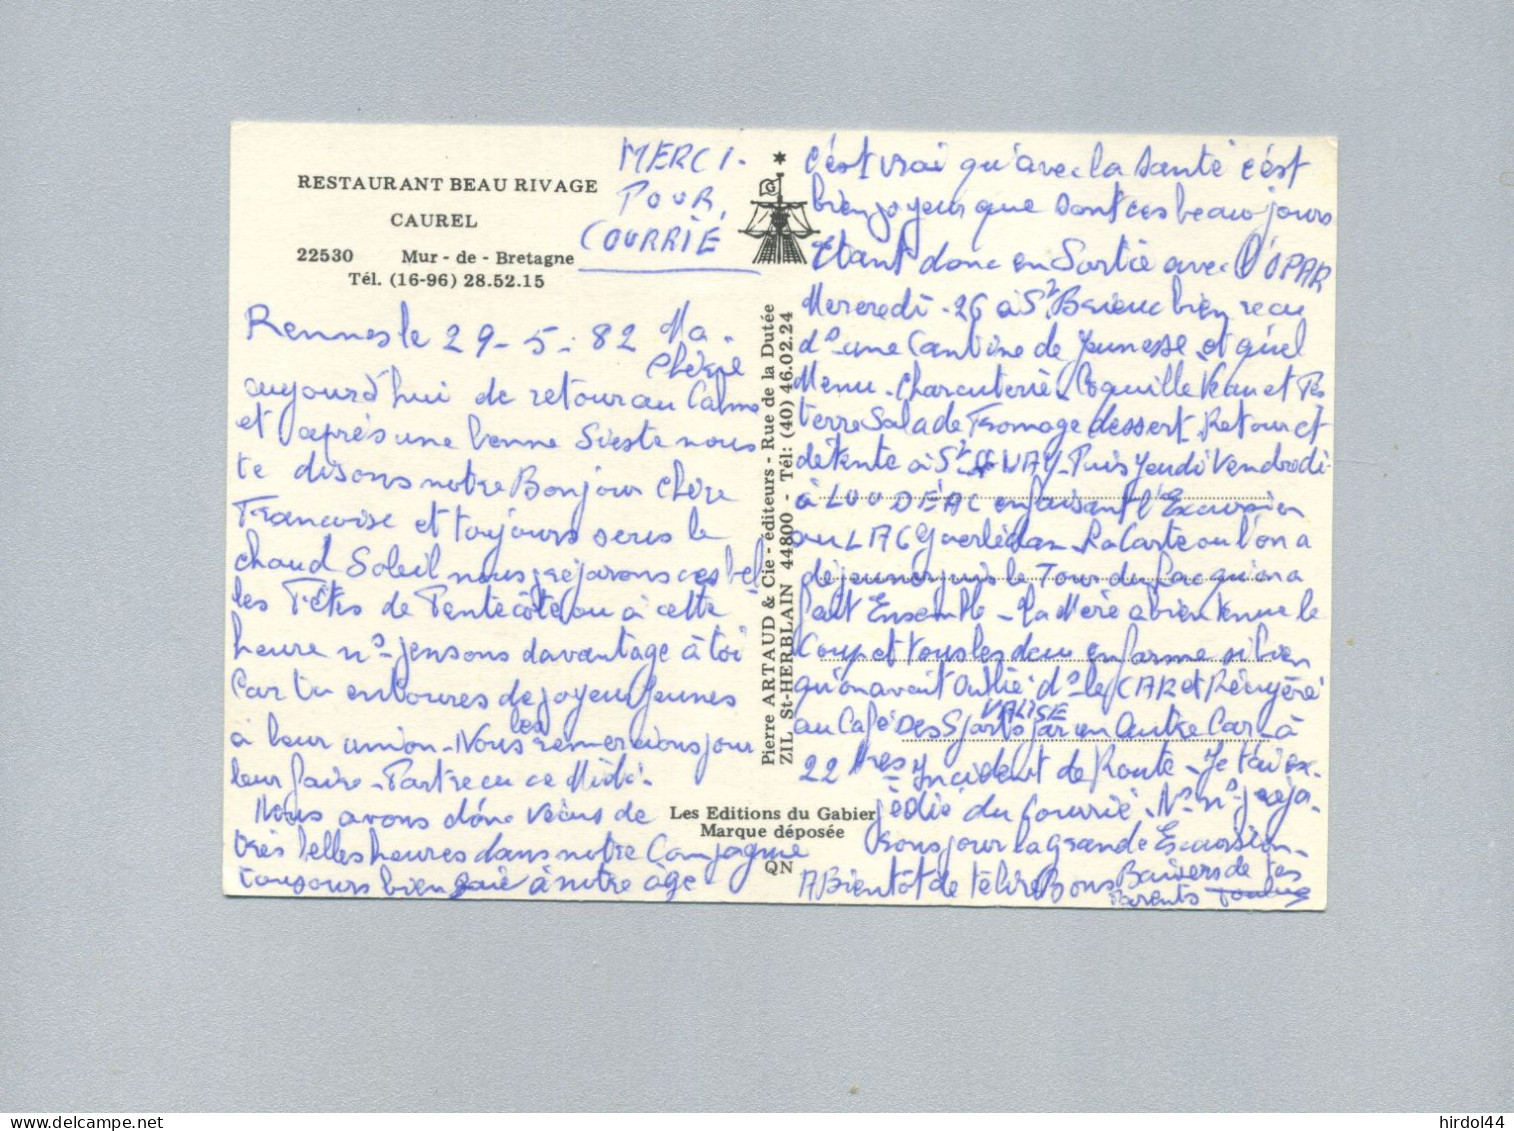 RESTAURANT BEAU RIVAGE
CAUREL
22530 Mur - de - Bretagne
Tél. (16-96) 28.52.15
MERCI.
POUR
COURRIÉ
Rennes le 29-5-82 Ma
chérie
aujourd'hui de retour au Calme
et après une bonne Sieste nous
te disons notre Bonjour chère
Francoise et toujours sous le
chaud Soleil nous préparons ces bel
les Fêtes de Pentecôte ou à cette
heure ns pensons davantage à toi
Car tu entoures de joyeux Jeunes
à leur union - Nous les remercions pour
leur faire-Part recu ce Midi.
Nous avons donc vécus de
très belles heures dans notre Compagnie
toujours bien gaie à notre âge
Pierre ARTAUD & Cie - éditeurs - Rue de la Dutée
ZIL St-HERBLAIN 44800 - Tél: (40) 46.02.24
Les Editions du Gabier
Marque déposée
QN
c'est vrai qu'avec la santé c'est
bien joyeux que sont ces beaux jours
Etant donc en Sortie avec l'OPAR
Mercredi. 26 à St Brieuc bien recu
ds une Cantine de Jeunesse et quel
Menu. Charcuterie Coquille Veau et Ps
terre Salade Fromage dessert. Retour et
détente à St QUAY - Puis Jeudi Vendredi
à LOUDÉAC en faisant l'Excursion
au LAC Guerlédan - La Carte ou l'on a
déjeuner puis le Tour du Lac qu'on a
fait Ensemble - La Mère a bien tenue le
Coup et tous les deux en forme si bien
qu'on avait Oublié ds le CAR et Récupéré
VALISE
au Café Des Sports par un Autre Car à
22 Hres Incident de Route - Je t'ai ex-
pédié du Courrié. Ns ns prépa-
rons pour la Grande Excursion -
A Bientôt de te lire Bons Baisers de tes
Parents